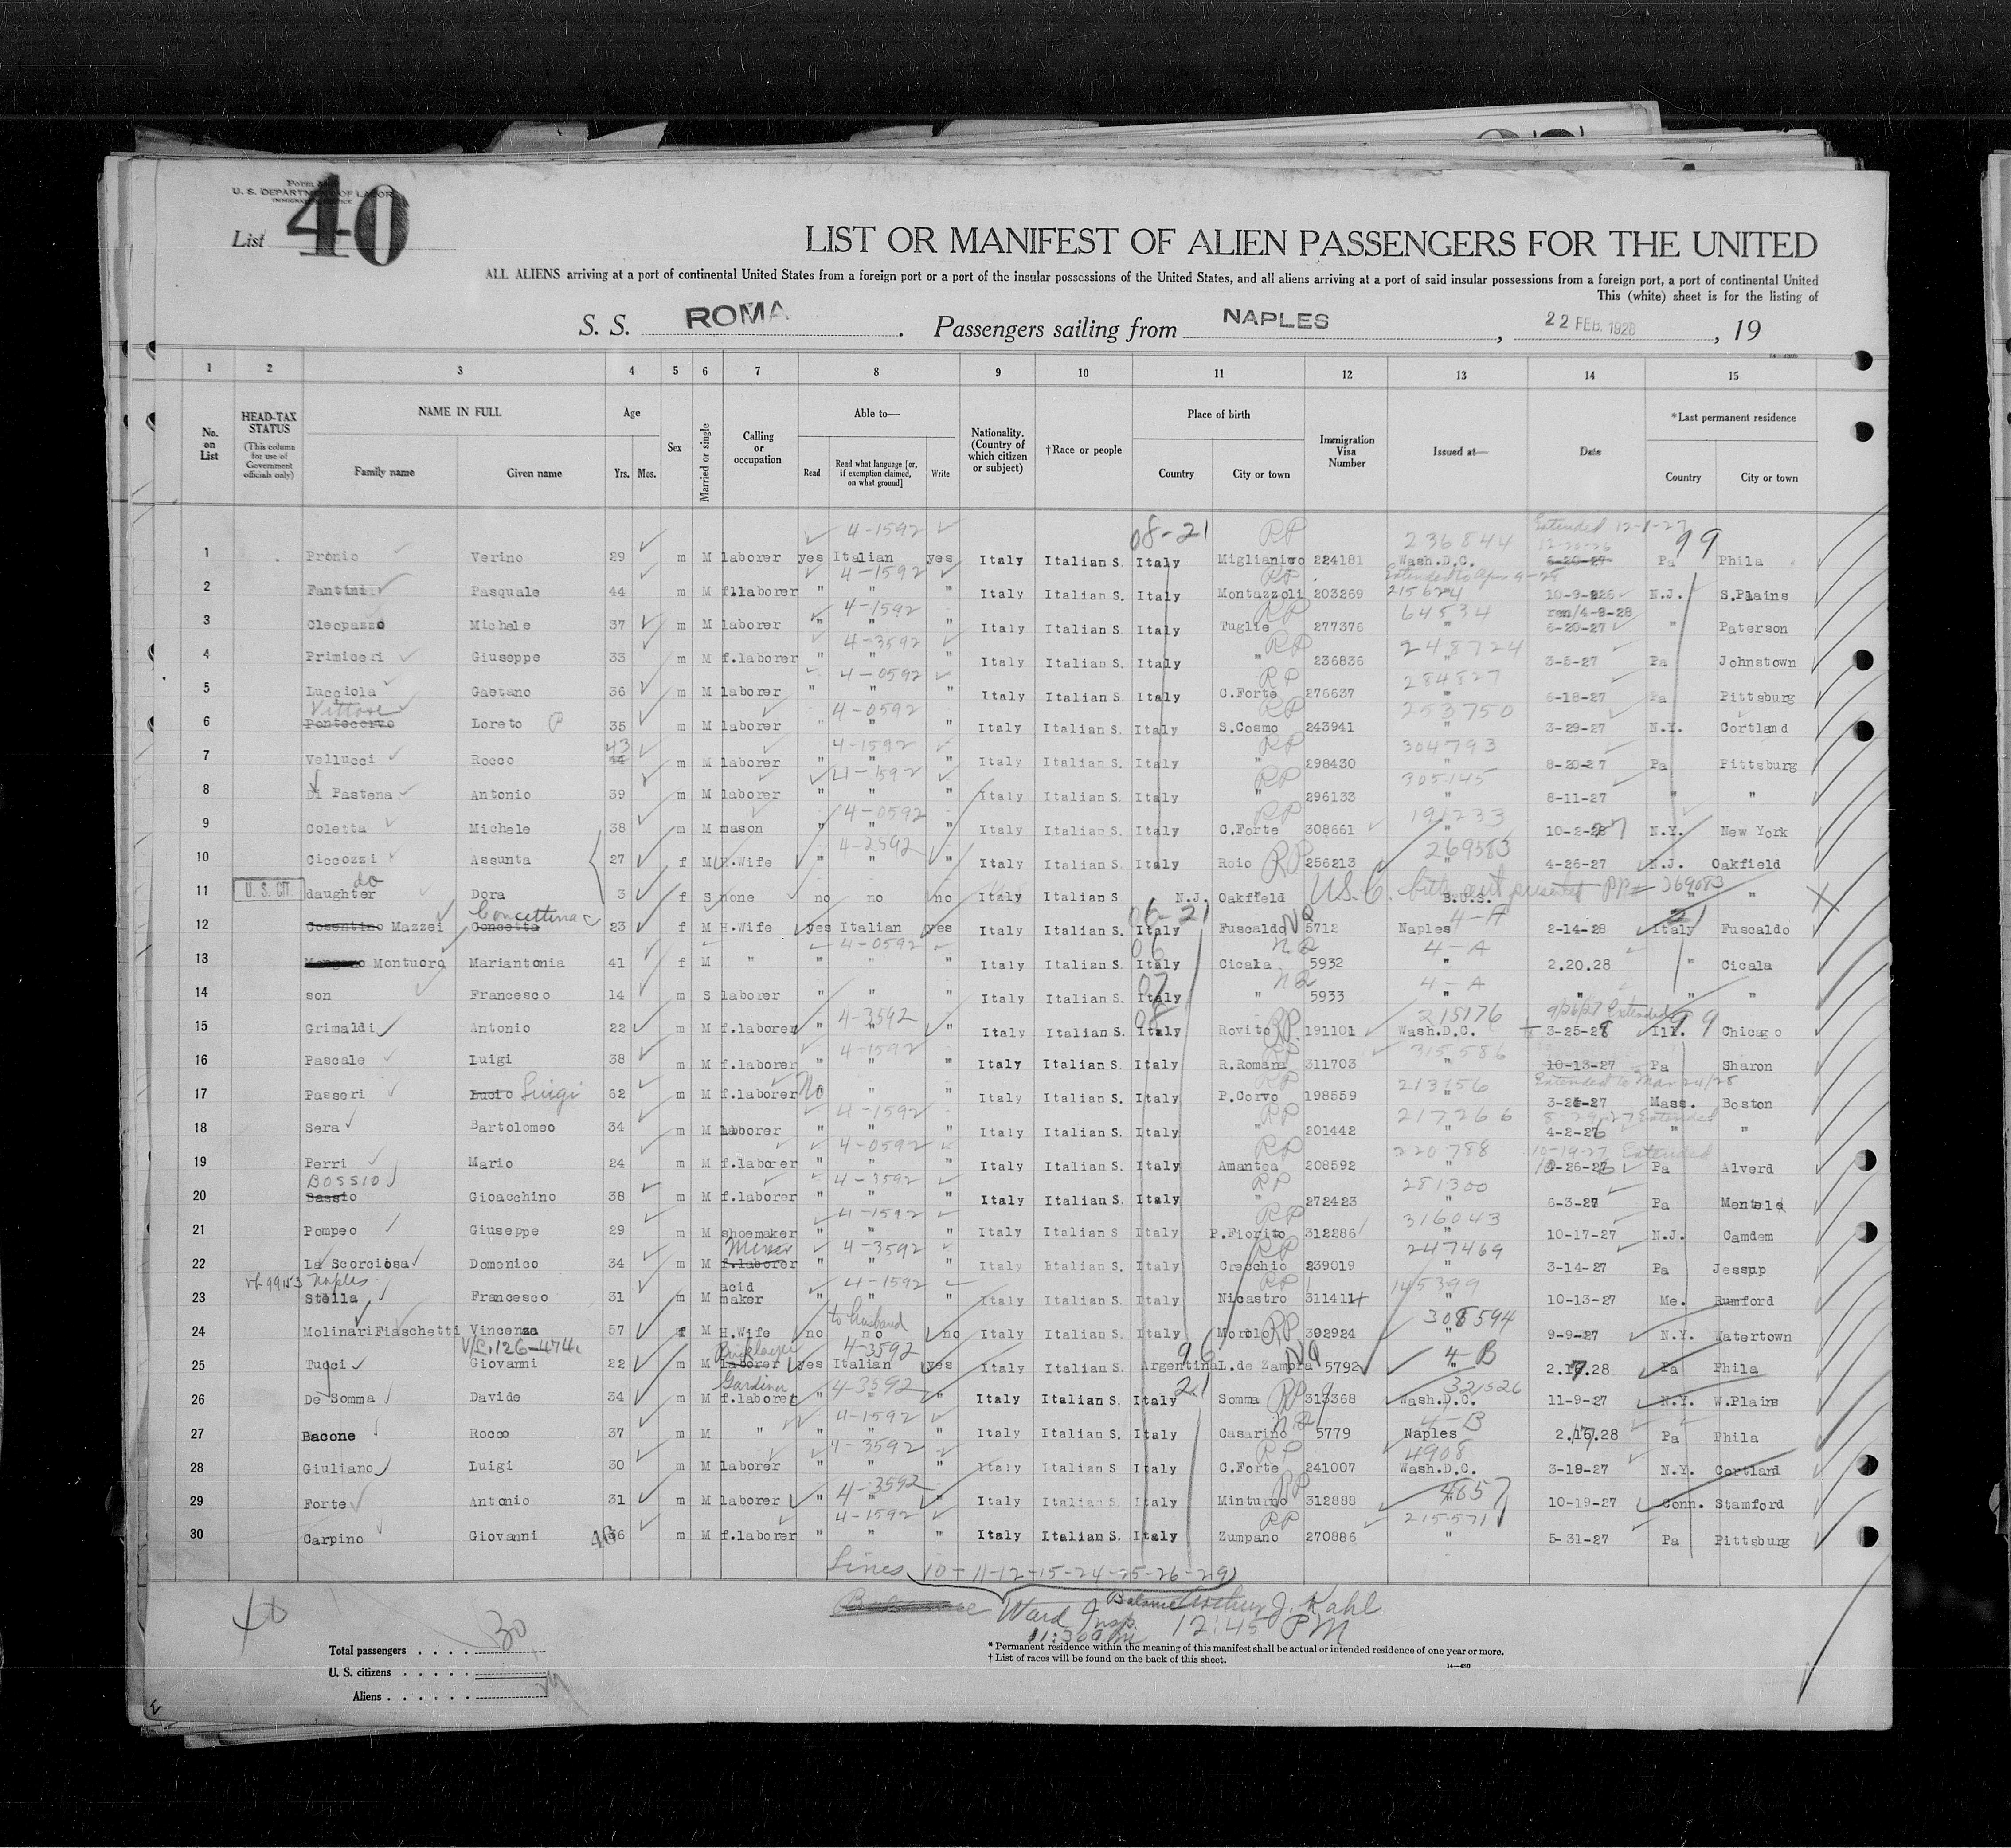 Form
U. S. DEPARTMENT OF LABOR
IMMIGRATION SERVICE
List 40
LIST OR MANIFEST OF ALIEN PASSENGERS FOR THE UNITED
ALL ALIENS arriving at a port of continental United States from a foreign port or a port of the insular possessions of the United States, and all aliens arriving at a port of said insular possessions from a foreign port, a port of continental United
This (white) sheet is for the listing of
S. S. ROMA. Passengers sailing from NAPLES, 22 FEB. 1928, 19
1 2 3 4 5 6 7 8 9 10 11 12 13 14 15
No. on List HEAD-TAX STATUS (This column for use of Government officials only) NAME IN FULL Family name Given name Age Yrs. Mos. Sex Married or single Calling or occupation Able to— Read Read what language [or, if exemption claimed, on what ground] Write Nationality. (Country of which citizen or subject) †Race or people Place of birth Country City or town Immigration Visa Number Issued at— Date *Last permanent residence Country City or town
4-1592 08-21 RP 236844 Extended 12-8-27 99
1 Pronio Verino 29 m M laborer yes Italian yes Italy Italian S. Italy 224181 Wash.D.C. 6-20-27 Pa Phila
4-1592 RP
2 Fantini Pasquale 44 m M f.laborer " " " Italy Italian S. Italy Montazzoli 203269 N.J. S.Plains
4-1592 RP 64534 ren/4-9-28
3 Cleopazzo Michele 37 m M laborer " " " Italy Italian S. Italy Tuglie 277376 " 6-20-27 " Paterson
4-3592 RP 248724
4 Primiceri Giuseppe 33 m M f.laborer " " " Italy Italian S. Italy " 236836 " 3-5-27 Pa Johnstown
4-0592 RP 284827
5 Lucciola Gaetano 36 m M laborer " " " Italy Italian S. Italy C.Forte 276637 " 6-18-27 Pa Pittsburg
Vittore 4-0592 RP 253750
6 Pontecorvo Loreto P 35 m M laborer " " " Italy Italian S. Italy S.Cosmo 243941 " 3-29-27 N.Y. Cortland
43 4-1592 RP 304793
7 Vellucci Rocco 44 m M laborer " " " Italy Italian S. Italy " 298430 " 8-20-27 Pa Pittsburg
4-1592 RP 305145
8 Di Pastena Antonio 39 m M laborer " " " Italy Italian S. Italy " 296133 " 8-11-27 " "
4-0592 RP 191233
9 Coletta Michele 38 m M mason " " " Italy Italian S. Italy C.Forte 308661 " 10-2-27 N.Y. New York
4-2592 269583
10 Ciccozzi Assunta 27 f M H.Wife " " " Italy Italian S. Italy Roio RP 256213 " 4-26-27 N.J. Oakfield
do
11 U. S. CIT. daughter Dora 3 f S none no no no Italy Italian S N.J. Oakfield U.S.C. B.U.S. " "
Concettina 06-21 NQ 4-A 21
12 Cosentino Mazzei Concetta 23 f M H.Wife yes Italian yes Italy Italian S. Italy Fuscaldo 5712 Naples 2-14-28 Italy Fuscaldo
4-0592 06 NQ 4-A
13 Montuoro Mariantonia 41 f M " " " " Italy Italian S. Italy Cicala 5932 " 2.20.28 " Cicala
07 NQ 4-A
14 son Francesco 14 m S laborer " " " Italy Italian S. Italy " 5933 " " " "
4-3592 08 215176 9/26/27 Extended 99
15 Grimaldi Antonio 22 m M f.laborer " " " Italy Italian S. Italy Rovito RP. 191101 Wash.D.C. Ill. Chicago
4-1592 RP 315586
16 Pascale Luigi 38 m M f.laborer " " " Italy Italian S. Italy R.Romana 311703 " 10-13-27 Pa Sharon
RP 213156 Extended to Mar 24/28
17 Passeri Lucio Luigi 62 m M f.laborer No " " Italy Italian S. Italy P.Corvo 198559 " Mass. Boston
4-1592 RP 217266 Extended
18 Sera Bartolomeo 34 m M laborer " " " Italy Italian S. Italy " 201442 " 4-2-26 " "
4-0592 RP 220788 10-19-27 Extended
19 Perri Mario 24 m M f.laborer " " " Italy Italian S. Italy Amantea 208592 " Pa Alverd
BOSSIO 4-3592 RP 281300
20 Sassio Gioacchino 38 m M f.laborer " " " Italy Italian S. Italy " 272423 " 6-3-27 Pa
4-1592 RP 316043
21 Pompeo Giuseppe 29 m M shoemaker " " " Italy Italian S Italy P.Fiorito 312286 " 10-17-27 N.J. Camdem
Miner 4-3592 RP 247469
22 La Scorciosa Domenico 34 m M f.laborer " " " Italy Italian S. Italy Crecchio 239019 " 3-14-27 Pa Jessup
Naples acid 4-1592 RP 145399
23 Stella Francesco 31 m M maker " " " Italy Italian S. Italy Nicastro 311411 " 10-13-27 Me. Rumford
to husband 308594
24 Molinari Fiaschetti Vincenza 57 f M H.Wife no no no Italy Italian S. Italy Morolo RP 302924 " 9-9-27 N.Y. Watertown
V/L.126-474. Bricklayer 4-3592 96 NQ 4-B
25 Tucci Giovanni 22 m M laborer yes Italian yes Italy Italian S. Argentina L. de Zamora 5792 " 2.17.28 Pa Phila
Gardiner 4-3592 21 321526
26 De Somma Davide 34 m M f.laborer " " " Italy Italian S. Italy Somma RP 313368 Wash.D.C. 11-9-27 N.Y. W.Plains
4-1592 NQ 4-B
27 Bacone Rocco 37 m M " " " " Italy Italian S. Italy Casarino 5779 Naples 2.17.28 Pa Phila
4-3592 RP 4908
28 Giuliano Luigi 30 m M laborer " " " Italy Italian S Italy C.Forte 241007 Wash.D.C. 3-18-27 N.Y. Cortland
4-3592 RP 4857
29 Forte Antonio 31 m M laborer " " " Italy Italian S Italy Minturno 312888 " 10-19-27 Conn. Stamford
4-1592 RP 215571
30 Carpino Giovanni 46 m M f.laborer " " " Italy Italian S. Italy Zumpano 270886 " 5-31-27 Pa Pittsburg
Lines 10-11-12-15-24-25-26-29
Ward Insp. Balance Arthur J. Kahl
11:30 AM 12:45 PM
Total passengers 30
U. S. citizens
Aliens
* Permanent residence within the meaning of this manifest shall be actual or intended residence of one year or more.
† List of races will be found on the back of this sheet.
14—430